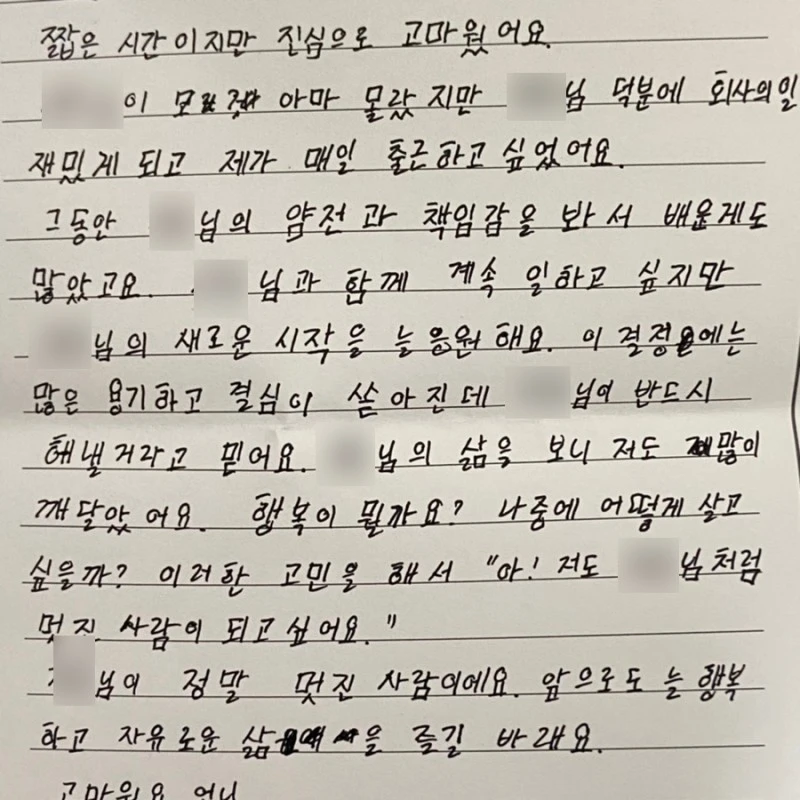 짧은 시간이지만 진심으로 고마웠어요.
이 아마 몰랐지만 님 덕분에 회사의일
재밌게 되고 제가 매일 출근하고 싶었어요.
그동안 님의 얌전과 책임감을 봐서 배운게도
많았고요. 님과 함께 계속 일하고 싶지만
님의 새로운 시작을 늘 응원해요. 이 결정에는
많은 용기하고 결심이 쏟아진데 님이 반드시
해낼거라고 믿어요. 님의 삶을 보니 저도 많이
깨달았어요. 행복이 뭘까요? 나중에 어떻게 살고
싶을까? 이러한 고민을 해서 "아! 저도 님처럼
멋진 사람이 되고싶어요."
님이 정말 멋진 사람이에요. 앞으로도 늘 행복
하고 자유로운 삶을 즐길 바래요.
고마워요 언니